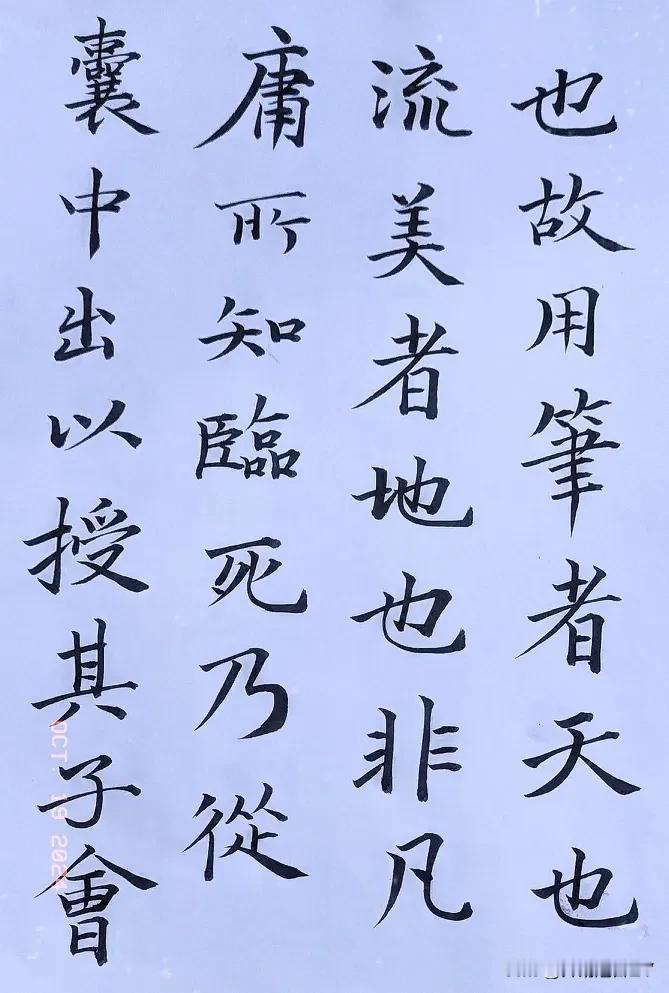 也故用筆者天也
流美者地也非凡
庸所知臨死乃從
囊中出以授其子會
OCT. 19 2024